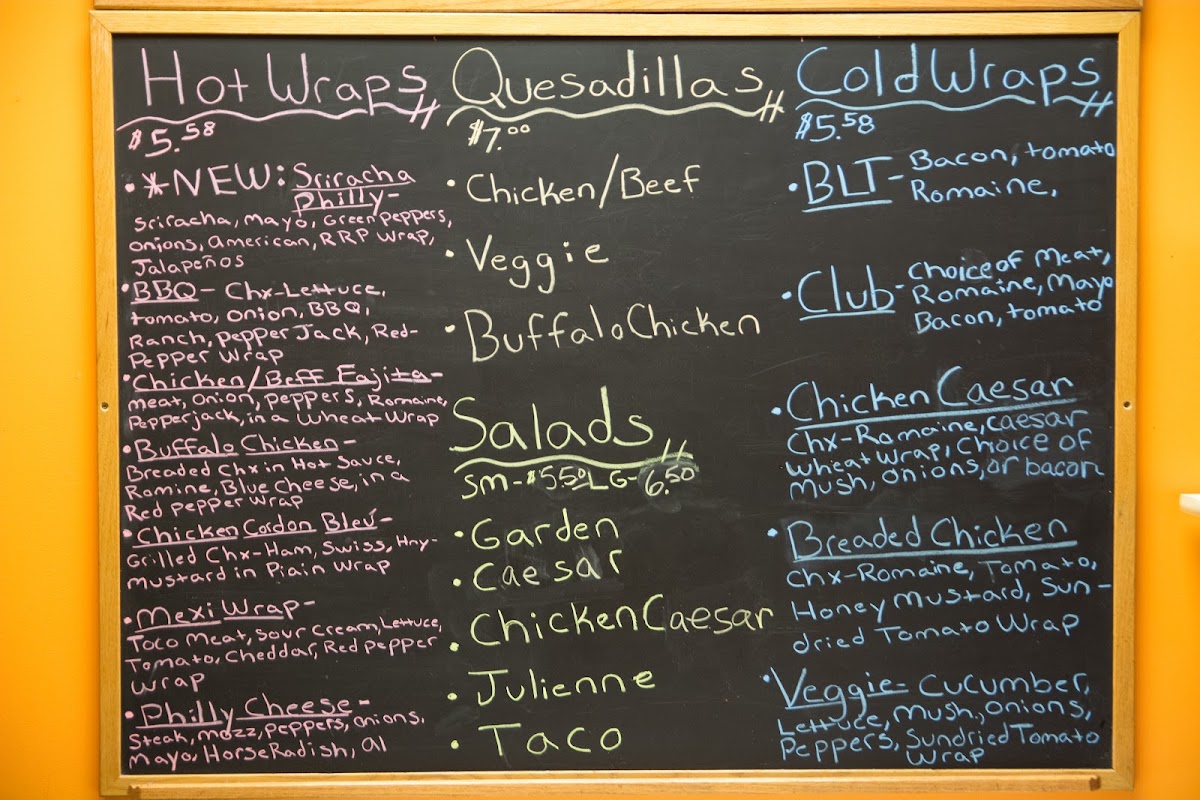 Hot Wraps
$5.58
• *NEW: Sriracha
Philly-
Sriracha, Mayo, Green Peppers,
Onions, American, RRP Wrap,
Jalapeños
• BBQ- Chx-Lettuce,
Tomato, Onion, BBQ,
Ranch, Pepper Jack, Red-
Pepper Wrap
• Chicken/Beff Fajita-
meat, Onion, Peppers, Romaine,
Pepperjack, in a Wheat Wrap
• Buffalo Chicken-
Breaded Chx in Hot Sauce,
Romine, Blue Cheese, in a
Red Pepper Wrap
• Chicken Cordon Bleú-
Grilled Chx-Ham, Swiss, Hny-
Mustard in Plain Wrap
• Mexi Wrap-
Toco Meat, Sour Cream, Lettuce,
Tomato, Cheddar, Red Pepper
Wrap
• Philly Cheese-
Steak, Mozz, Peppers, Onions,
Mayo, HorseRadish, A1
Quesadillas
$7.00
• Chicken/Beef
• Veggie
• Buffalo Chicken
Salads
SM-$5.50 LG-6.50
• Garden
• Caesar
• Chicken Caesar
• Julienne
• Taco
Cold Wraps
$5.58
• BLT- Bacon, tomato
Romaine,
• Club- Choice of Meat,
Romaine, Mayo
Bacon, tomato
• Chicken Caesar
Chx-Romaine, Caesar
Wheat Wrap, Choice of
Mush, Onions, or bacon
• Breaded Chicken
Chx-Romaine, Tomato,
Honey Mustard, Sun-
dried Tomato Wrap
• Veggie- Cucumber,
Lettuce, Mush., Onions,
Peppers, Sundried Tomato
Wrap